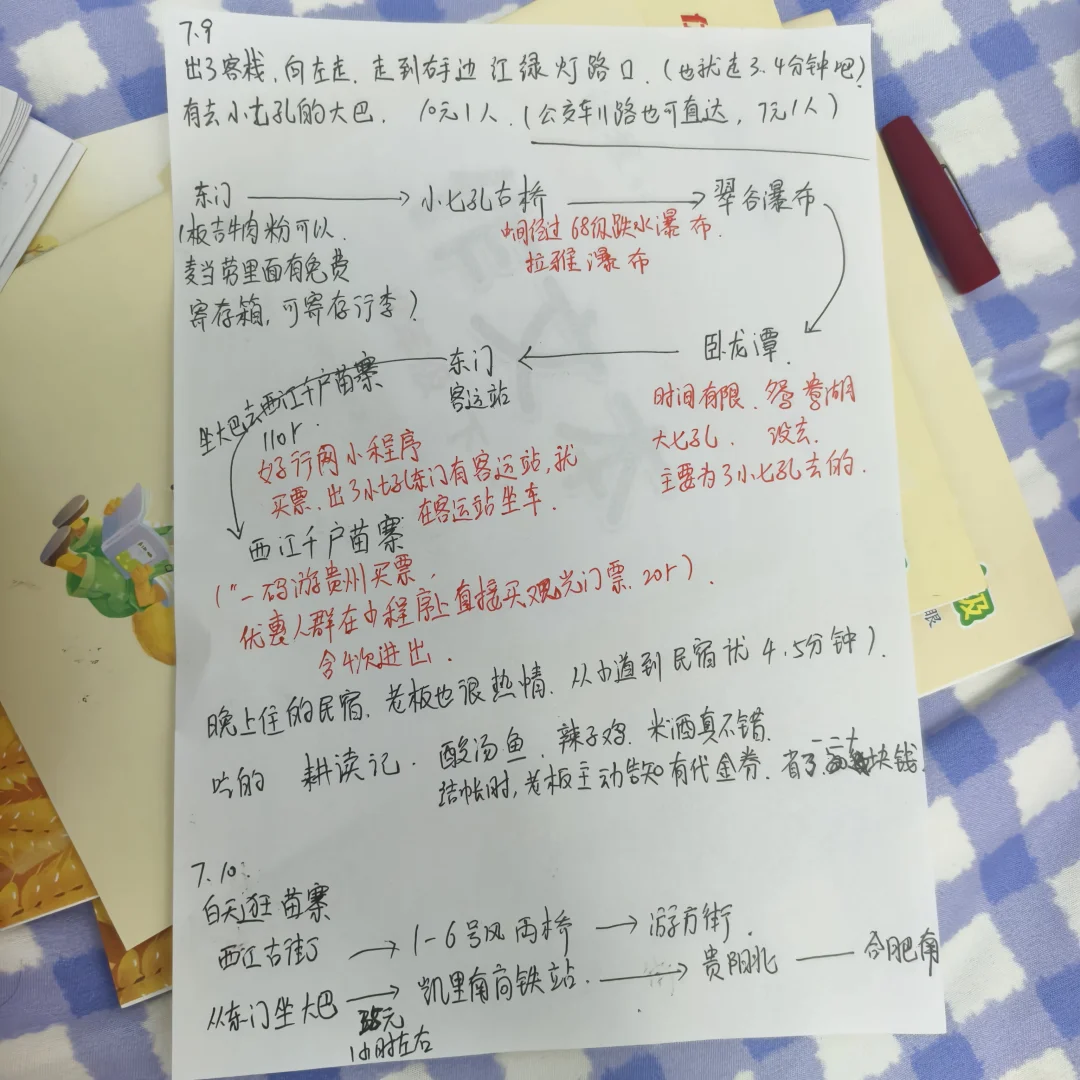 7.9
出了客栈,向左走,走到右手边红绿灯路口,(也就走3.4分钟吧)
有去小七孔的大巴. 10元1人.(公交车11路也可直达,7元1人)
东门 → 小七孔古桥 → 翠谷瀑布
中间经过68级跌水瀑布.
拉雅瀑布
牛肉粉可以.
麦当劳里面有免费
寄存箱,可寄存行李)
卧龙潭.
时间有限.鸳鸯湖
大七孔. 没去.
主要为了小七孔去的.
东门
客运站
坐大巴去西江千户苗寨
110r.
好行网小程序
买票.出了小七孔东门有客运站,就
在客运站坐车.
西江千户苗寨
("一码游贵州买票.
优惠人群在小程序上直接买观光门票.20r).
含4次进出.
晚上住的民宿.老板也很热情.从小道到民宿就4.5分钟).
吃的 耕读记. 酸汤鱼.辣子鸡.米酒真不错.
结帐时,老板主动告知有代金券.省了二三十块钱.
7.10:
白天逛苗寨
西江古街 → 1-6号风雨桥 → 游方街.
从东门坐大巴 → 凯里南高铁站. → 贵阳北 — 合肥南
元
1小时左右
及
服